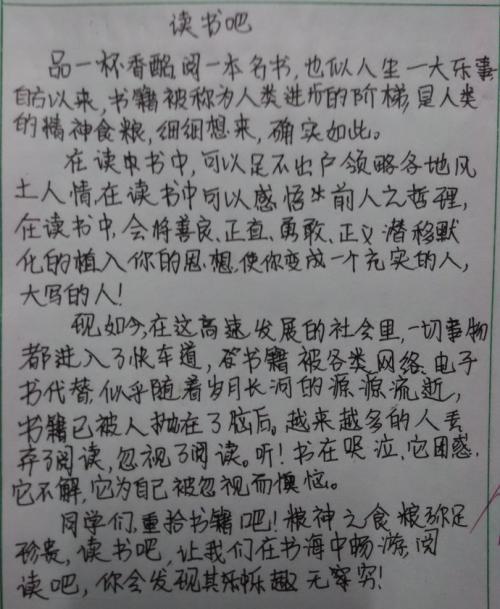 读书吧
品一杯香醇,阅一本名书,也似人生一大乐事
自古以来,书籍被称为人类进步的阶梯,是人类
的精神食粮,细细想来,确实如此。
在读中书中,可以足不出户领略各地风
土人情,在读书中可以感悟出前人之哲理,
在读书中,会将善良、正直、勇敢、正义潜移默
化的植入你的思想,使你变成一个充实的人,
大写的人!
现如今,在这高速发展的社会里,一切事物
都进入了快车道,书籍被各类网络、电子
书代替,似乎随着岁月长河的源源流逝,
书籍已被人抛在了脑后。越来越多的人丢
弃了阅读,忽视了阅读。听!书在哭泣,它困惑,
它不解,它为自己被忽视而懊恼。
同学们,重拾书籍吧!精神之食粮弥足
珍贵,读书吧,让我们在书海中畅游,阅
读吧,你会发现其乐趣无穷!